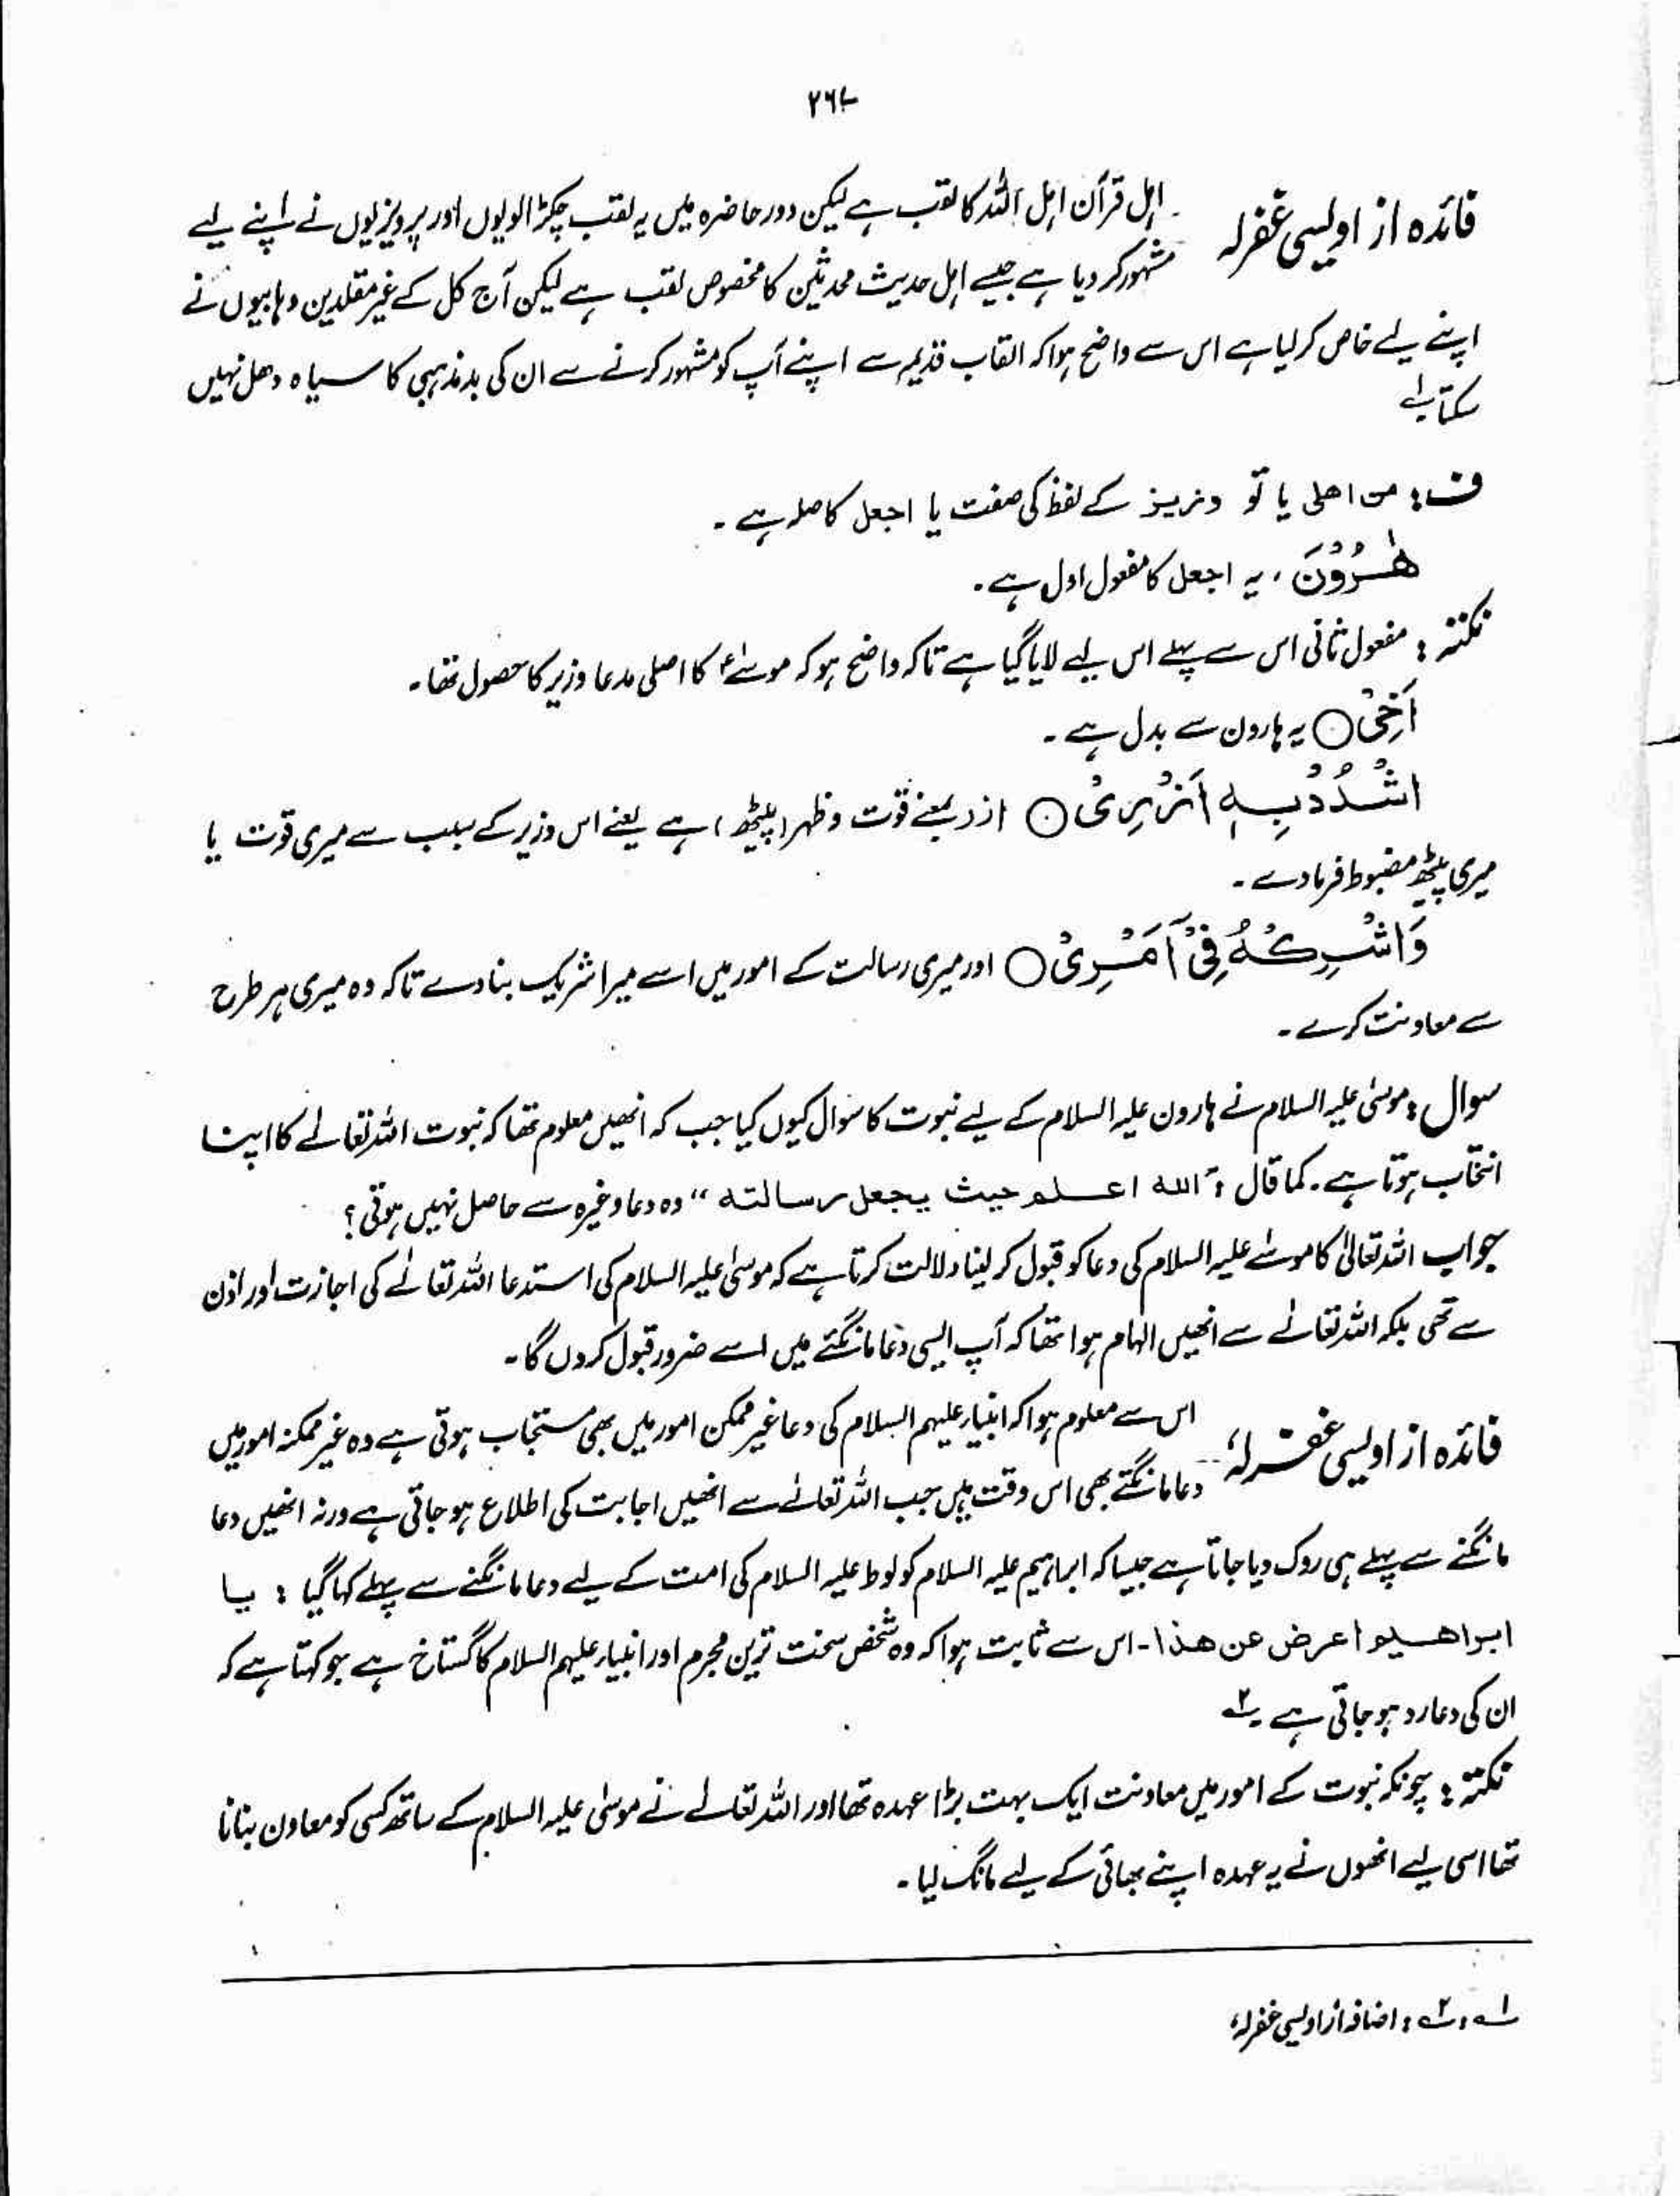 ۲۶۷
فائدہ از اویسی غفرلہ
اہل قرآن اہل اللہ کا لقب ہے لیکن دور حاضرہ میں یہ لقب چکڑالویوں اور پرویزیوں نے اپنے لیے
مشہور کر دیا ہے جیسے اہل حدیث محدثین کا مخصوص لقب ہے لیکن آج کل کے غیر مقلدین وہابیوں نے
اپنے لیے خاص کر لیا ہے اس سے واضح ہوا کہ القاب قدیمہ سے اپنے آپ کو مشہور کرنے سے ان کی بدمذہبی کا سیاہ دھل نہیں
سکتا۔۱؎
ف: من اھلی یا تو وزیر کے لفظ کی صفت یا اجعل کا صلہ ہے۔
ھٰرُوْنَ ، یہ اجعل کا مفعول اول ہے۔
نکتہ: مفعول ثانی اس سے پہلے اس لیے لایا گیا ہے تاکہ واضح ہو کہ موسٰے ؑ کا اصلی مدعا وزیر کا حصول تھا۔
اَخِیْ ○ یہ ہارون سے بدل ہے۔
اشْدُدْ بِہٖ اَزْرِیْ ○ ازر بمعنے قوت و ظہر (پیٹھ) ہے یعنے اس وزیر کے سبب سے میری قوت یا
میری پیٹھ مضبوط فرما دے۔
وَاَشْرِکْہُ فِیْٓ اَمْرِیْ ○ اور میری رسالت کے امور میں اسے میرا شریک بنا دے تاکہ وہ میری ہر طرح
سے معاونت کرے۔
سوال: موسیٰ علیہ السلام نے ہارون علیہ السلام کے لیے نبوت کا سوال کیوں کیا جب کہ انھیں معلوم تھا کہ نبوت اللہ تعالےٰ کا اپنا
انتخاب ہوتا ہے۔ کما قال: "اللہ اعلم حیث یجعل رسالتہ" وہ دعا وغیرہ سے حاصل نہیں ہوتی؟
جواب اللہ تعالیٰ کا موسٰے علیہ السلام کی دعا کو قبول کر لینا دلالت کرتا ہے کہ موسیٰ علیہ السلام کی استدعا اللہ تعالےٰ کی اجازت اور اذن
سے تھی بلکہ اللہ تعالےٰ سے انھیں الہام ہوا تھا کہ آپ ایسی دعا مانگئے میں اسے ضرور قبول کروں گا۔
فائدہ از اویسی غفرلہٗ
اس سے معلوم ہوا کہ انبیاء علیہم السلام کی دعا غیر ممکن امور میں بھی مستجاب ہوتی ہے وہ غیر ممکنہ امور میں
دعا مانگتے بھی اس وقت ہیں جب اللہ تعالےٰ سے انھیں اجابت کی اطلاع ہو جاتی ہے ورنہ انھیں دعا
مانگنے سے پہلے ہی روک دیا جاتا ہے جیسا کہ ابراہیم علیہ السلام کو لوط علیہ السلام کی امت کے لیے دعا مانگنے سے پہلے کہا گیا: یا
ابراھیم اعرض عن ھذا۔ اس سے ثابت ہوا کہ وہ شخص سخت ترین مجرم اور انبیاء علیہم السلام کا گستاخ ہے جو کہتا ہے کہ
ان کی دعا رد ہو جاتی ہے۔۲؎
نکتہ: چونکہ نبوت کے امور میں معاونت ایک بہت بڑا عہدہ تھا اور اللہ تعالےٰ نے موسیٰ علیہ السلام کے ساتھ کسی کو معاون بنانا
تھا اسی لیے انھوں نے یہ عہدہ اپنے بھائی کے لیے مانگ لیا۔
۱؎، ۲؎: اضافہ از اویسی غفرلہٗ